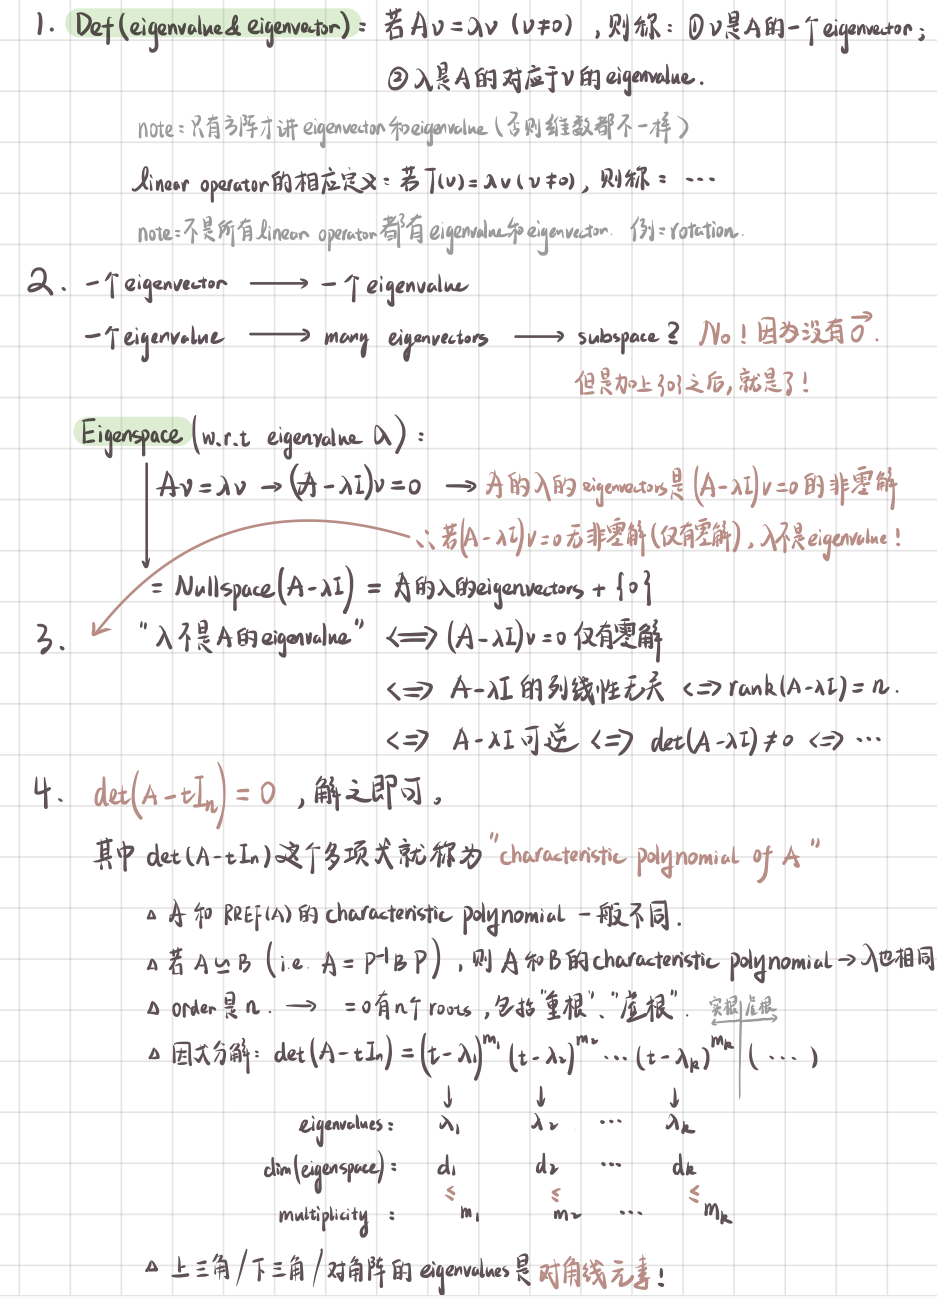 1. Def(eigenvalue & eigenvector): 若Av=λv (v≠0) ,则称: ①v是A的一个eigenvector;
②λ是A的对应于v的eigenvalue.
note:只有方阵才讲eigenvector和eigenvalue(否则维数都不一样)
linear operator的相应定义:若T(v)=λv(v≠0),则称: ···
note:不是所有linear operator都有eigenvalue和eigenvector. 例:rotation.
2. 一个eigenvector ⟶ 一个eigenvalue
一个eigenvalue ⟶ many eigenvectors ⟶ subspace? No!因为没有0⃗.
但是加上{0}之后,就是了!
Eigenspace (w.r.t eigenvalue λ):
Av=λv → (A-λI)v=0 → A的λ的eigenvectors是(A-λI)v=0的非零解
∴若(A-λI)v=0无非零解(仅有零解),λ不是eigenvalue!
= Nullspace(A-λI) = A的λ的eigenvectors + {0}
3. "λ不是A的eigenvalue" <=> (A-λI)v=0 仅有零解
<=> A-λI的列线性无关 <=> rank(A-λI)=n.
<=> A-λI可逆 <=> det(A-λI)≠0 <=> ···
4. det(A-tIₙ)=0 ,解之即可。
其中det(A-tIn)这个多项式就称为"characteristic polynomial of A"
△ A和RREF(A)的characteristic polynomial一般不同.
△ 若A∽B (i.e. A=P⁻¹BP),则A和B的characteristic polynomial→λ也相同
△ order是n. → =0有n个roots,包括"重根"、"虚根". 实根|虚根
△ 因式分解: det(A-tIn)=(t-λ₁)^m₁ (t-λ₂)^m₂ ··· (t-λₖ)^mₖ | (···)
↓ ↓ ↓
eigenvalues: λ₁ λ₂ ··· λₖ
dim(eigenspace): d₁ d₂ ··· dₖ
≤ ≤ ≤
multiplicity : m₁ m₂ ··· mₖ
△ 上三角/下三角/对角阵的eigenvalues是对角线元素!